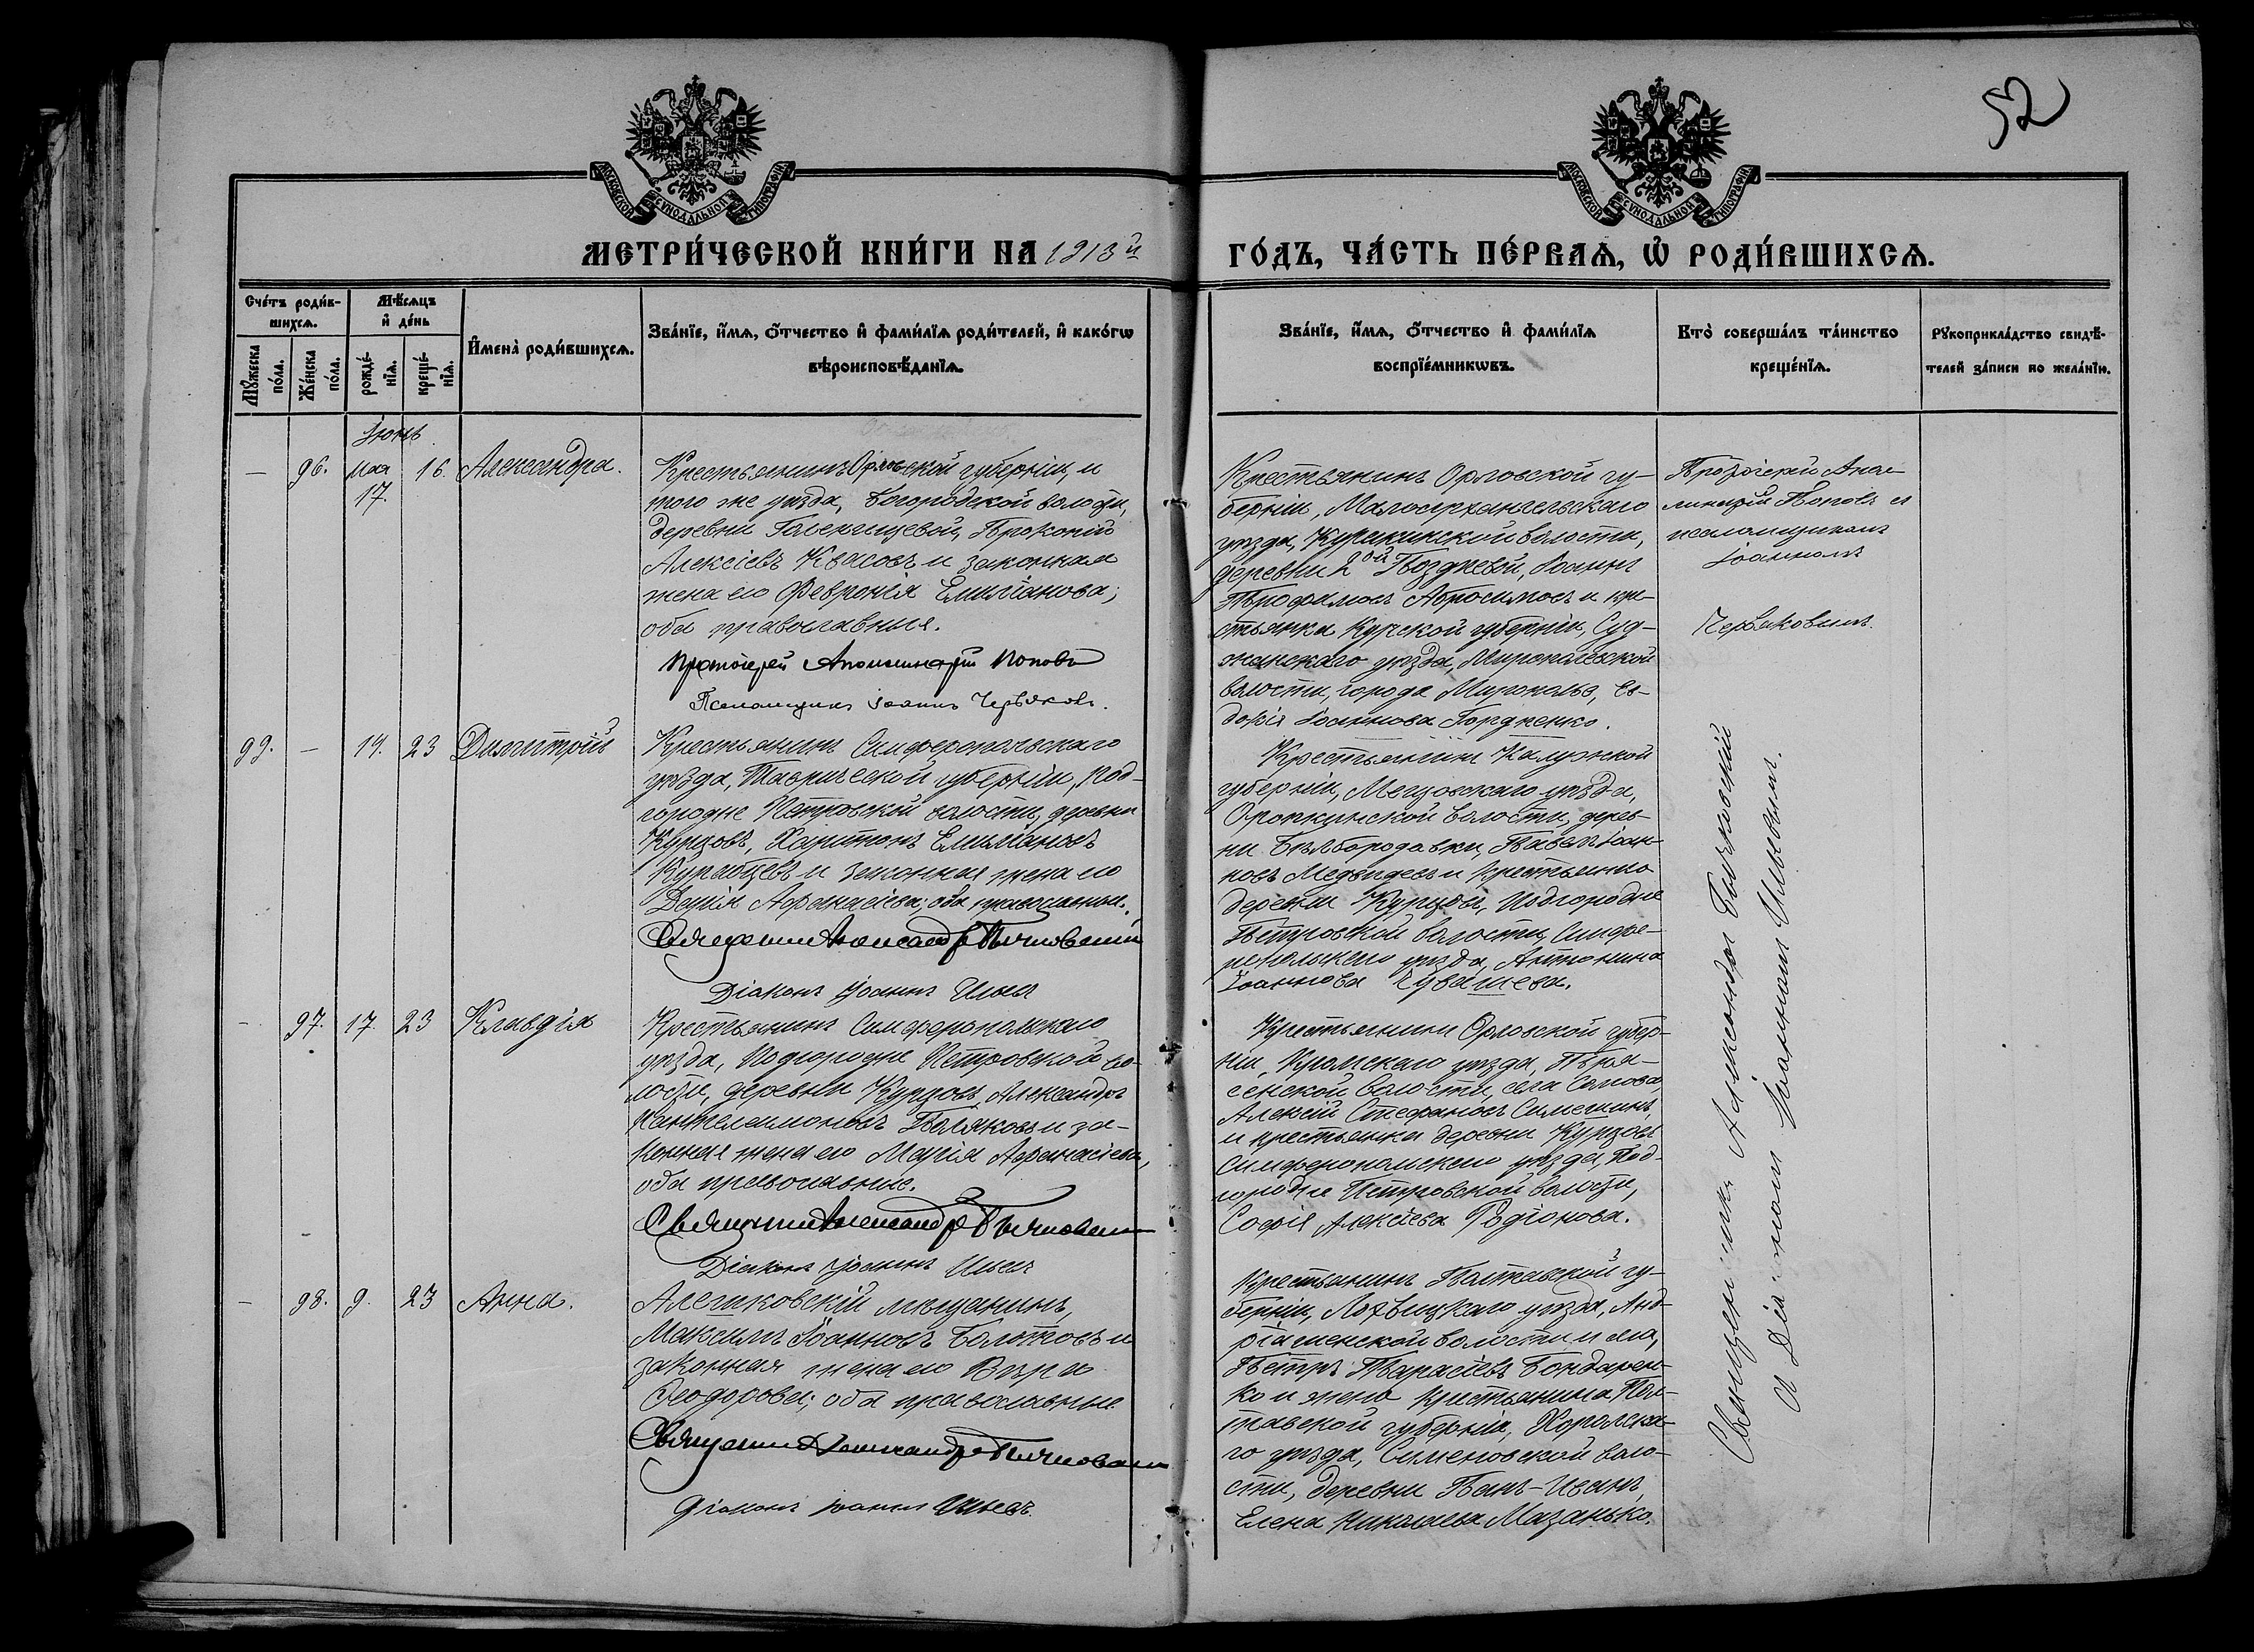 52
МОСКОВСКОЙ СѴНОДАЛЬНОЙ ТИПОГРАФІИ
МОСКОВСКОЙ СѴНОДАЛЬНОЙ ТИПОГРАФІИ
МЕТРИ́ЧЕСКОЙ КНИ́ГИ НА 1913й
ГО́ДЪ, ЧА́СТЬ ПЕ́РВАѦ, Ѡ҆ РОДИ́ВШИХСѦ.
Сче́тъ роди́в-
шихсѧ.
Мꙋ́жеска по́ла.
Же́нска по́ла.
Мѣ́сѧцъ
и҆ де́нь
рожде́-
нїѧ.
креще́-
нїѧ.
И҆мена̀ роди́вшихсѧ.
Зва́нїе, и҆́мѧ, ѻ҆́тчество и҆ фами́лїѧ роди́телей, и҆ како́гѡ
вѣроисповѣ́данїѧ.
Зва́нїе, и҆́мѧ, ѻ҆́тчество и҆ фами́лїѧ
воспрїе́мникѡвъ.
Кто̀ соверша́лъ та́инство
креще́нїѧ.
Рꙋкоприкла́дство свидѣ́-
телей за́писи по жела́нїю.
Іюнь
— 96. Мая 17. 16. Александра.
Крестьянинъ Орловской губерніи, и
того же уѣзда, Богородской волости,
деревни Прокопій
Алексіевъ Квасовъ и законная
жена его Февронія Емиліанова;
оба православные.
Протоіерей Аполлинарій Поповъ
Псаломщикъ Іоаннъ Червяковъ.
Крестьянинъ Орловской гу-
берніи, Малоархангельскаго
уѣзда, Куракинской волости,
деревни 2ой Поздневой, Іоаннъ
Трофимовъ Абросимовъ и кре-
стьянка Курской губерніи, Суд-
жанскаго уѣзда, Миропольской
волости, города Мирополье, Ев-
докія Іоаннова Гордіенко.
Протоіерей Апол-
линарій Поповъ и
псаломщикомъ
Іоанномъ
Червяковымъ.
99. — 14. 23 Димитрій
Крестьянинъ Симферопольскаго
уѣзда, Таврической губерніи, Под-
городне Петровской волости, деревни
Курцовъ, Харитонъ Емиліановъ
и законная жена его
Дарія Афанасіева; оба православные.
Священникъ Александръ
Діаконъ Іоаннъ Ильинъ
Крестьянинъ Калужской
губерніи, Мещовскаго уѣзда,
волости, дерев-
ни Бѣлбородавки, Павелъ Іоан-
новъ Медвѣдевъ и крестьянка
деревни Курцовъ, Подгородне
Петровской волости, Симфе-
ропольскаго уѣзда, Антонина
Іоаннова Чувашева.
— 97. 17. 23 Клавдія
Крестьянинъ Симферопольскаго
уѣзда, Подгородне Петровской во-
лости, деревни Курцовъ, Александръ
Пантелеимоновъ Поляковъ и за-
конная жена его Марія Афанасіева,
оба православные.
Священникъ Александръ
Діаконъ Іоаннъ Ильинъ
Крестьянинъ Орловской губер-
ніи, Кромскаго уѣзда,
волости, села
Алексій Стефановъ
и крестьянка деревни Курцовъ
Симферопольскаго уѣзда, Под-
городне Петровской волости,
Софія Алексіева Родіонова.
— 98. 9. 23 Анна.
Алешковскій мѣщанинъ,
Максимъ Іоанновъ и
законная жена его Вѣра
Ѳеодорова; оба православные
Священникъ Александръ
Діаконъ Іоаннъ Ильинъ
Крестьянинъ Полтавской гу-
берніи, Лохвицкаго уѣзда, Анд-
ріяшевской волости и села,
Петръ Тарасіевъ Бондарен-
ко и жена крестьянина Пол-
тавской губерніи, Хорольска-
го уѣзда, Семеновской воло-
сти, деревни Панъ-Иванъ,
Елена Николаева Мазанько.
Священникъ Александръ
и Діаконъ Іоаннъ